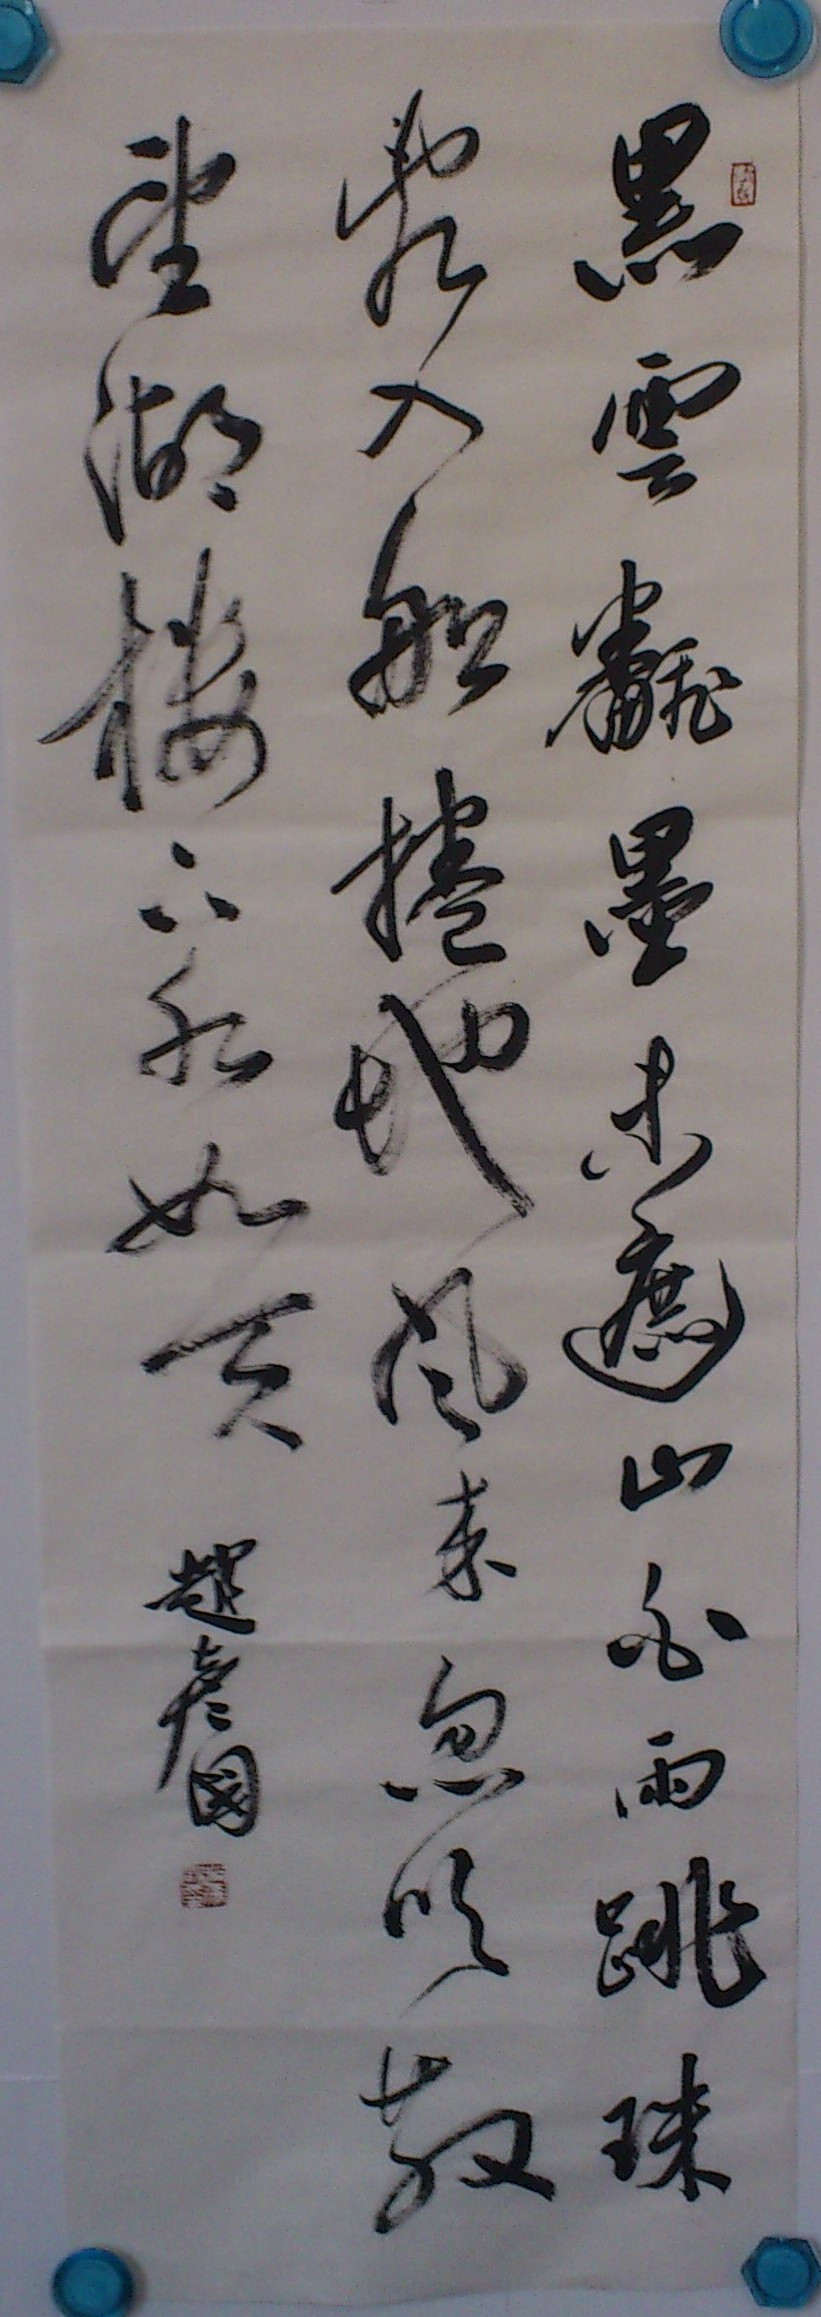 黑雲翻墨未遮山白雨跳珠
亂入船捲地風來忽吹散
望湖樓下水如天
趙彥國